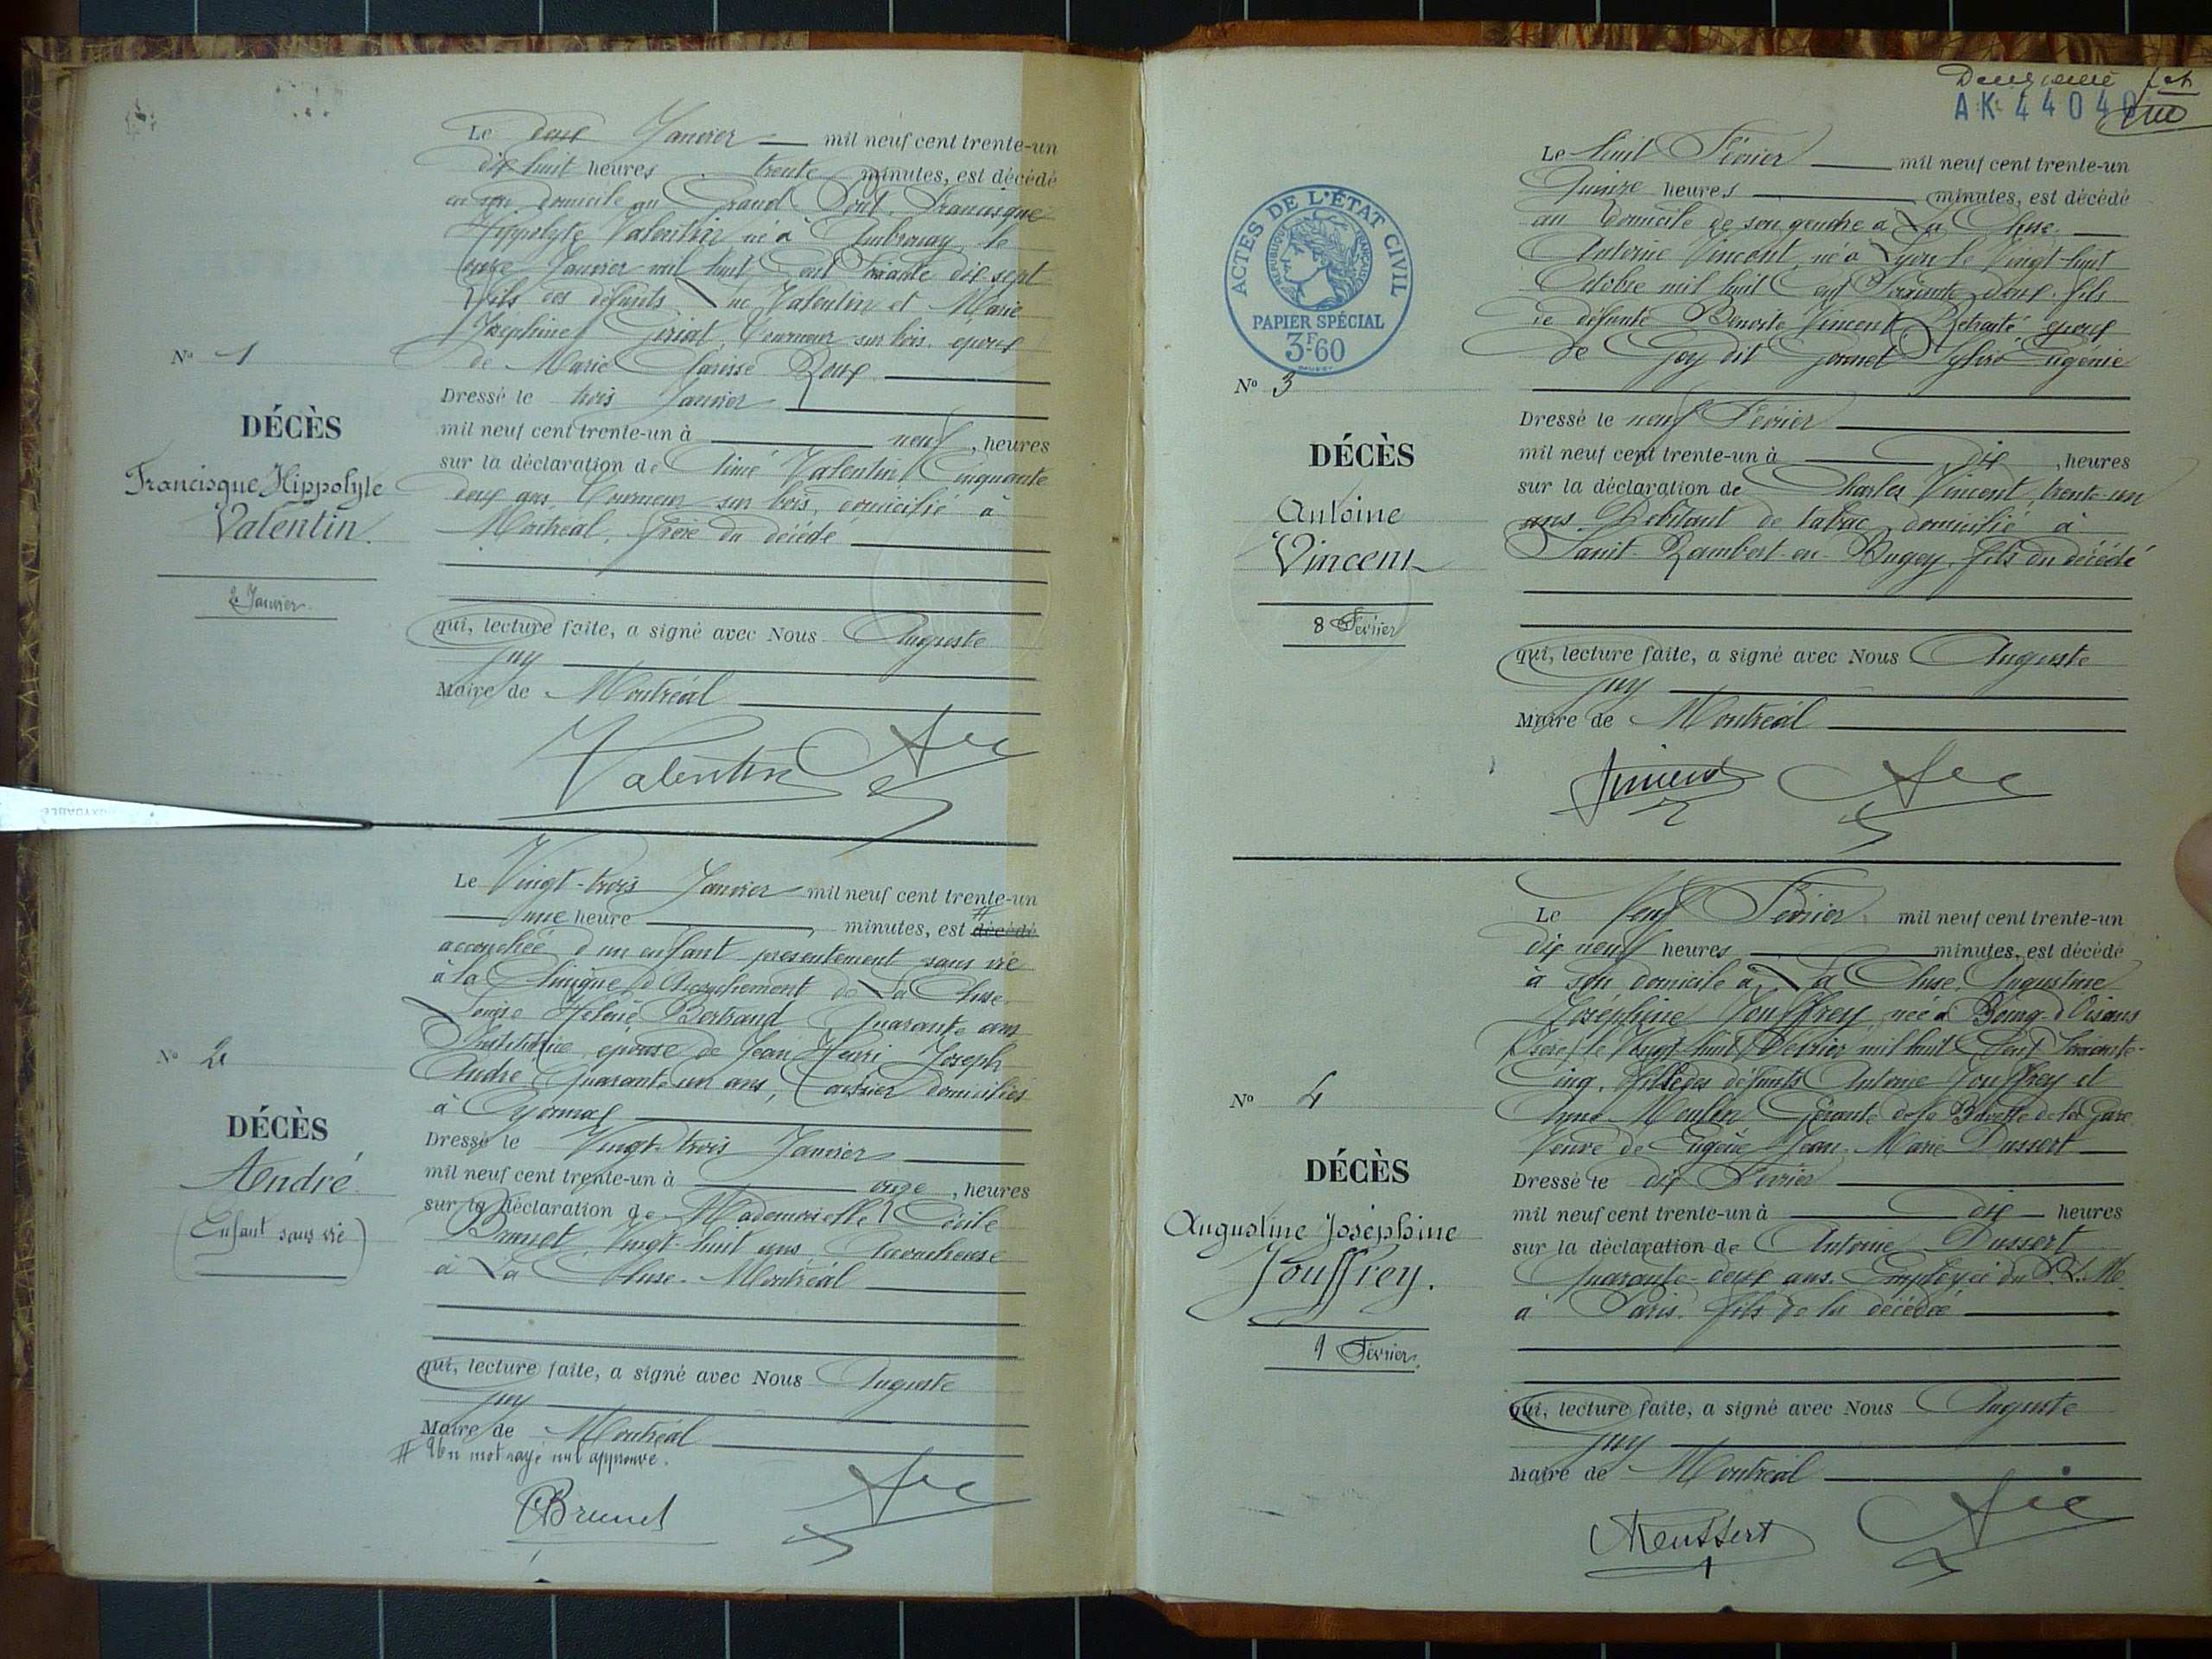 Le deux Janvier mil neuf cent trente-un
dix huit heures trente minutes, est décédé
en son domicile au Grand Pont, Francisque
Hippolyte Valentin né à Ambronay, le
onze Janvier mil huit cent soixante dix-sept
fils des défunts Luc Valentin et Marie
Joséphine Tourneur sur bois, époux
de Marie Clarisse Roux
N° 1
DÉCÈS
Francisque Hippolyte
Valentin.
2 Janvier.
Dressé le trois Janvier
mil neuf cent trente-un à neuf, heures
sur la déclaration de Aimé Valentin, Cinquante
deux ans, Tourneur sur bois, domicilié à
Montréal, frère du décédé
qui, lecture faite, a signé avec Nous Auguste
Juy
Maire de Montréal
Valentin
Le Vingt-trois Janvier mil neuf cent trente-un
une heure minutes, est # décédé
accouchée d'un enfant présentement sans vie
à la Clinique d'Accouchement de La Cluse.
Louise Hélène Bertrand, Quarante ans
Institutrice, épouse de Jean Henri Joseph
André, Quarante un ans, domiciliés
à Oyonnax
N° 2
DÉCÈS
André
(Enfant sans vie)
Dressé le Vingt-trois Janvier
mil neuf cent trente-un à onze, heures
sur la déclaration de Mademoiselle Cécile
Brunet, Vingt-huit ans Accoucheuse
à La Cluse-Montréal
qui, lecture faite, a signé avec Nous Auguste
Juy
Maire de Montréal
# Un mot rayé nul approuvé.
CBrunet
Deuxième
AK 44040
ACTES DE L'ÉTAT CIVIL
RÉPUBLIQUE FRANÇAISE
PAPIER SPÉCIAL
3F.60
Le huit Février mil neuf cent trente-un
Quinze heures minutes, est décédé
au domicile de son gendre à La Cluse.
Antoine Vincent, né à Lyon le Vingt-huit
Octobre mil huit Cent Soixante deux, fils
de défunte Benoite Vincent, Retraité, époux
de Goy dit Gonnet Eugénie
N° 3
DÉCÈS
Antoine
Vincent
8 Février
Dressé le neuf Février
mil neuf cent trente-un à dix, heures
sur la déclaration de Charles Vincent, trente-un
ans, Débitant de tabac, domicilié à
Saint-Rambert-en-Bugey, fils du décédé
qui, lecture faite, a signé avec Nous Auguste
Juy
Maire de Montréal
Vincent
Le Neuf Février mil neuf cent trente-un
dix neuf heures minutes, est décédé
à son domicile à La Cluse, Augustine
Joséphine Jouffrey, née à Bourg-d'Oisans
(Isère) le Vingt-huit Février mil huit Cent Soixante-
Cinq, fille des défunts Antoine Jouffrey et
Anne Moulin, Gérante de la Buvette de la Gare,
Veuve de Eugène Jean-Marie Dussert
N° 4
DÉCÈS
Augustine Joséphine
Jouffrey.
9 Février.
Dressé le dix Février
mil neuf cent trente-un à dix heures
sur la déclaration de Antoine Dussert
Quarante-deux ans, Employé du P.L.M.
à Paris, fils de la décédée
qui, lecture faite, a signé avec Nous Auguste
Juy
Maire de Montréal